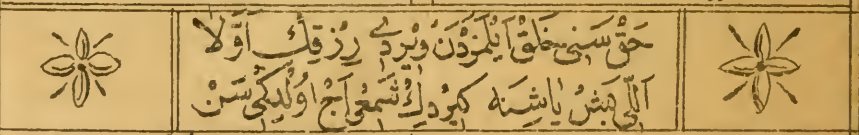 حَقْ سَنِى خَلْقْ اَيْلَمَزْدَنْ وِيْرِدِى رِزْقِكْ اَوَّلَا
اَللِّى بَشْ يَاشِنَه كِيرْدِكْ شَمْعِ آجْ اُولْدِيكِى سَنْ